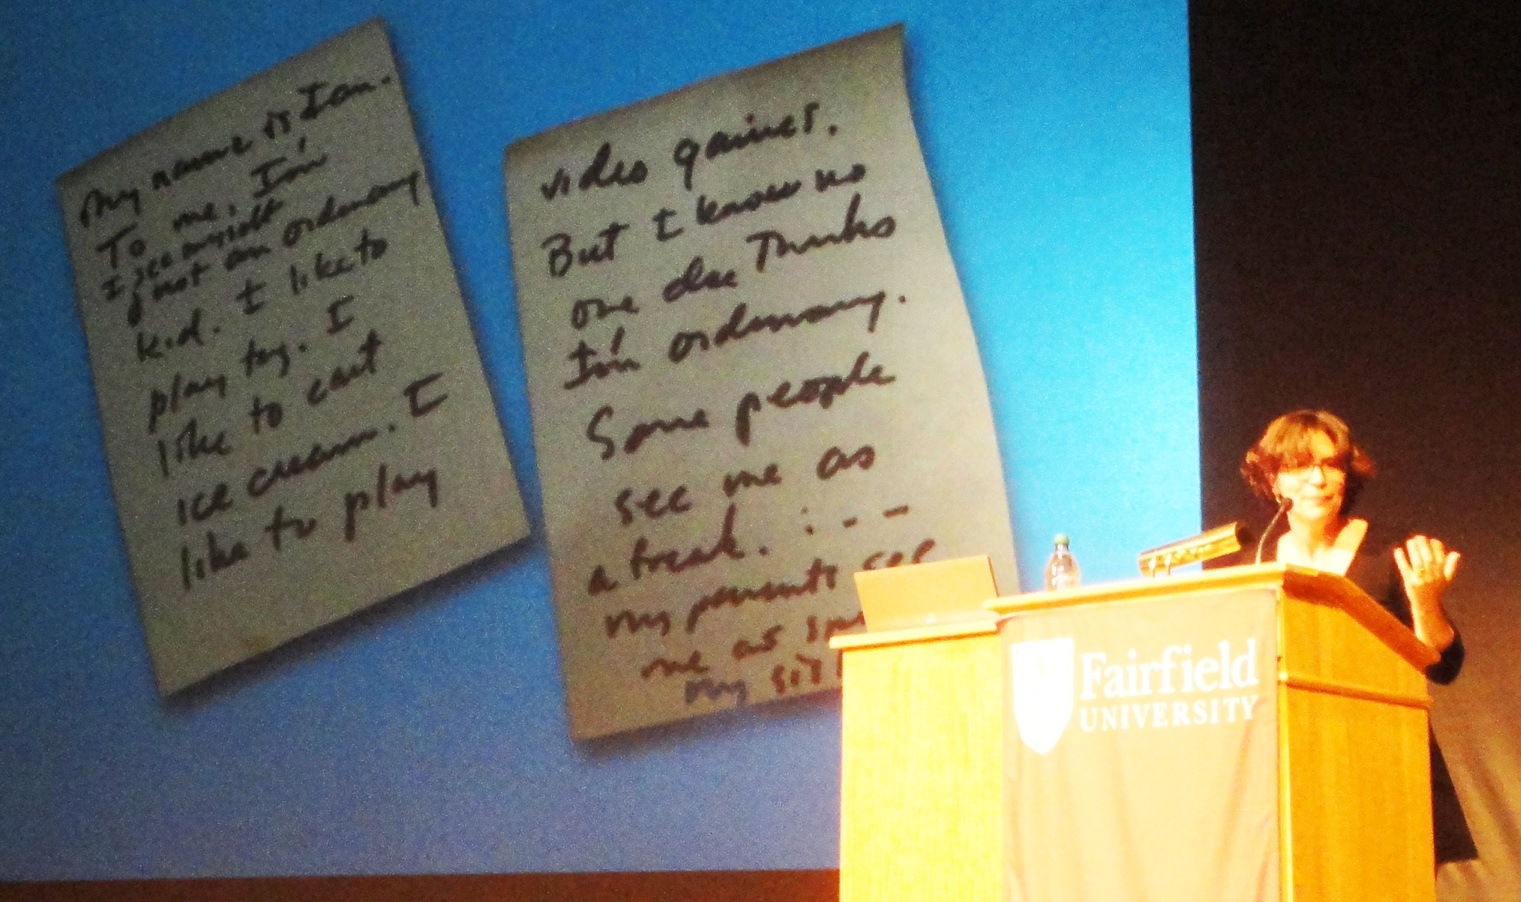 My name is Ian.
To me, I'm
I see myself
just an ordinary
kid. I like to
play tag. I
like to eat
ice cream. I
like to play
video games.
But I know no
one else thinks
I'm ordinary.
Some people
see me as
a freak. . . . –
my parents see
me as
my
Fairfield
UNIVERSITY